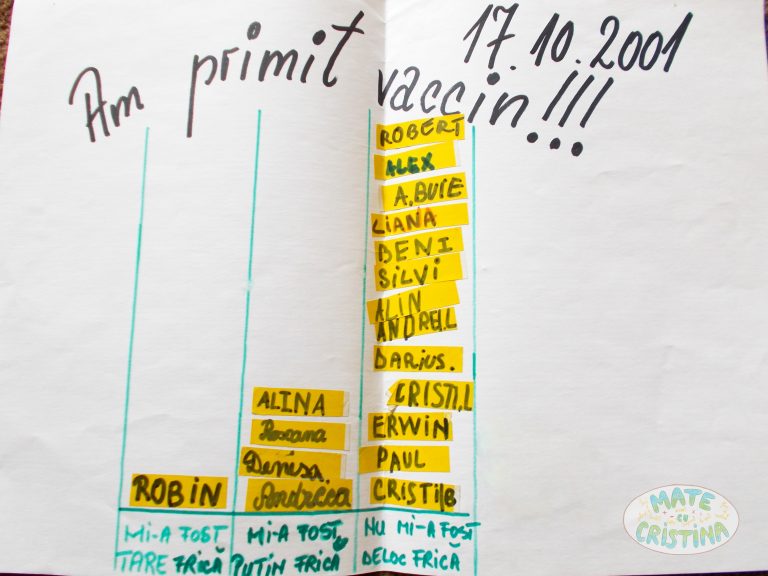 17.10.2001
Am primit vaccin!!!
ROBERT
ALEX
A.BUIE
LIANA
DENI
SILVI
ALIN
ANDREI.L
DARIUS.
CRISTI.L
ALINA
ERWIN
Roxana
PAUL
Denisa.
ROBIN
Andreea
CRISTI B
MI-A FOST
TARE FRICĂ
MI-A FOST
PUȚIN FRICĂ
NU MI-A FOST
DELOC FRICĂ
MATE
CU
CRISTINA